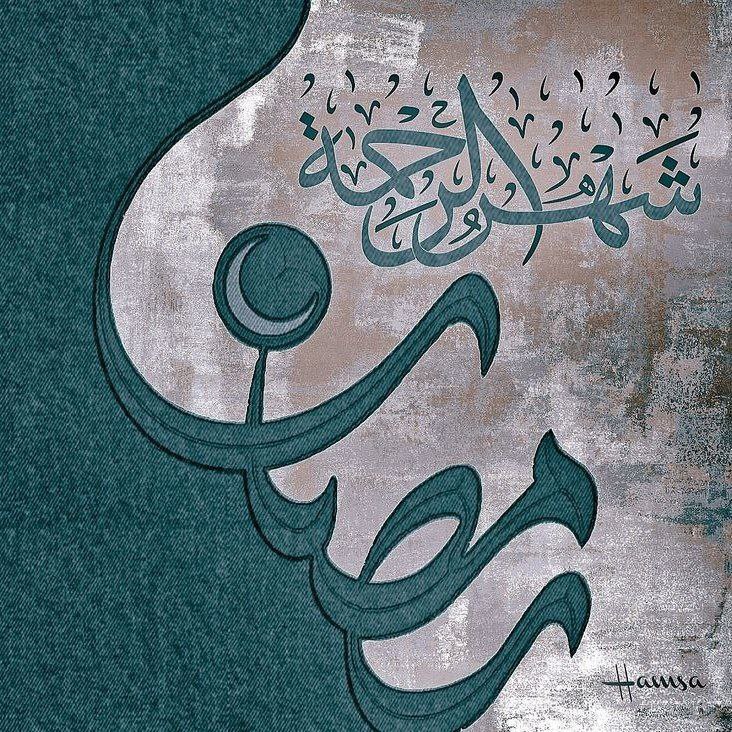 شهر الرحمة
رمضان
Hamsa